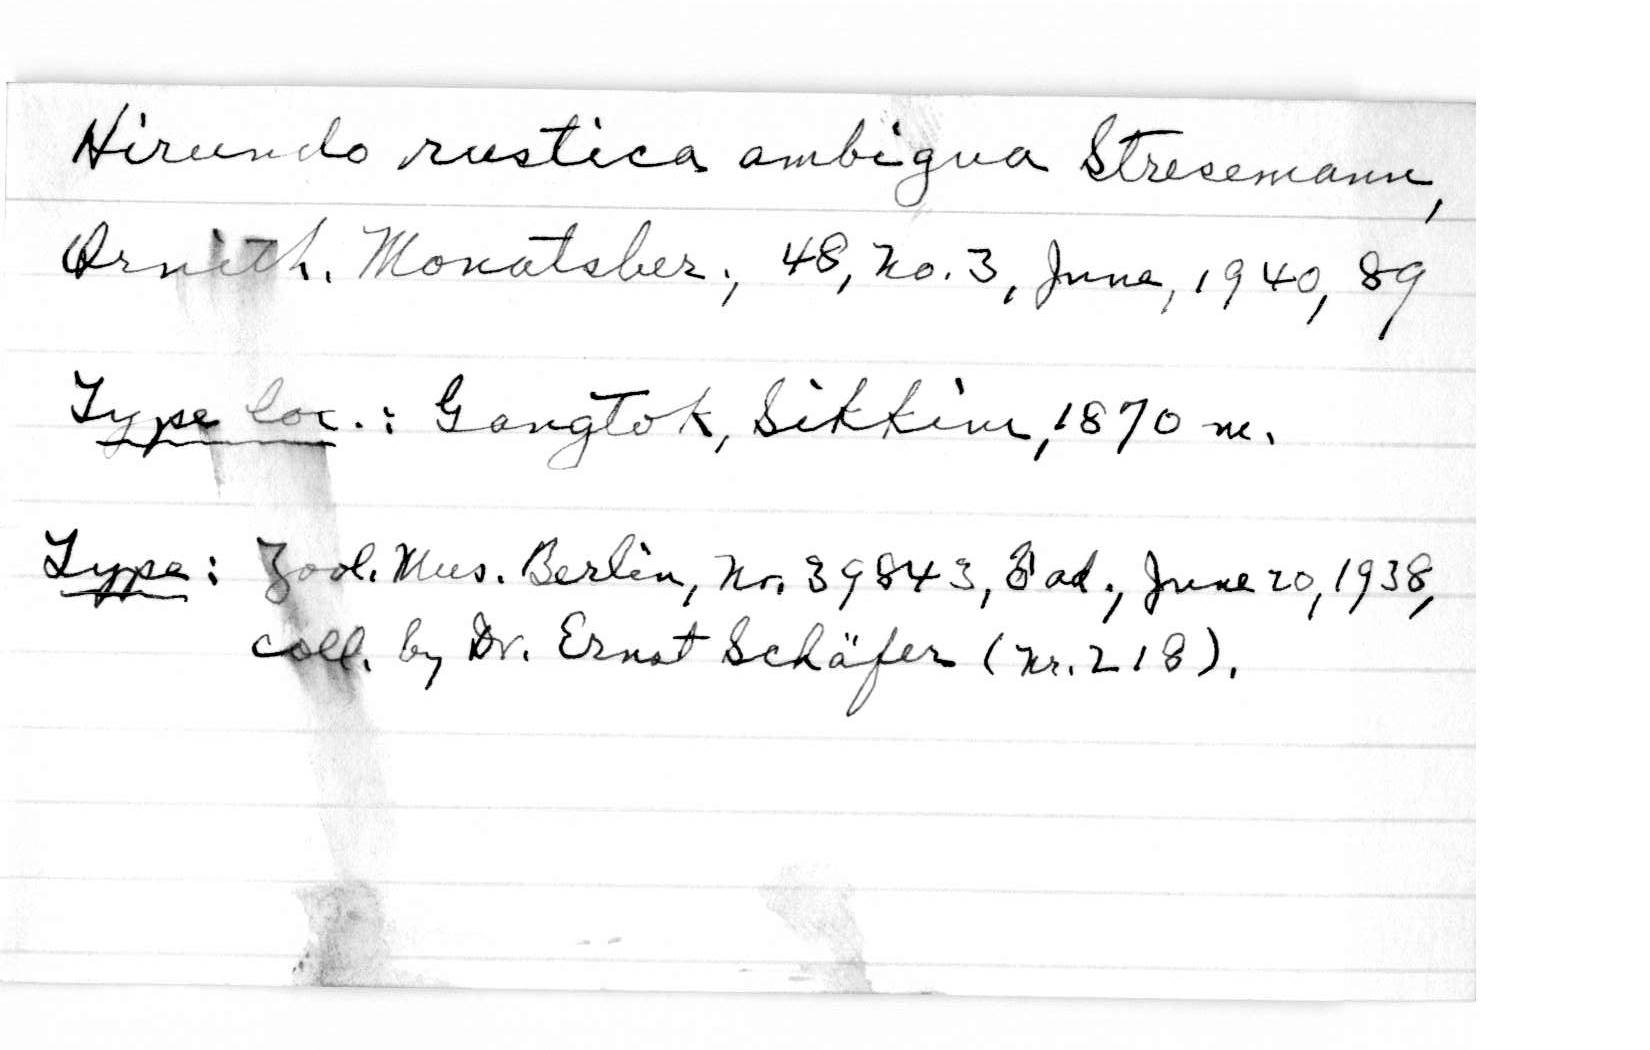 Hirundo rustica ambigua Stresemann,
Ornith. Monatsber., 48, no. 3, June, 1940, 89
Type loc.: Gangtok, Sikkim, 1870 m.
Type: Zool. Mus. Berlin, Nr. 39843, ♂ ad., June 20, 1938,
coll. by Dr. Ernst Schäfer (Nr. 218).